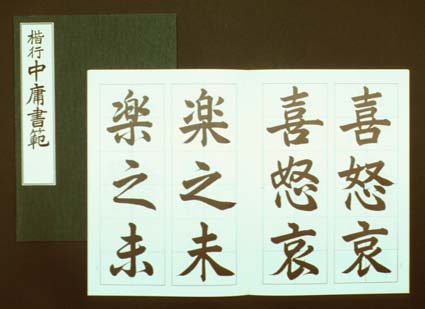 楷行中庸書範
喜怒哀
喜怒哀
楽之未
楽之未